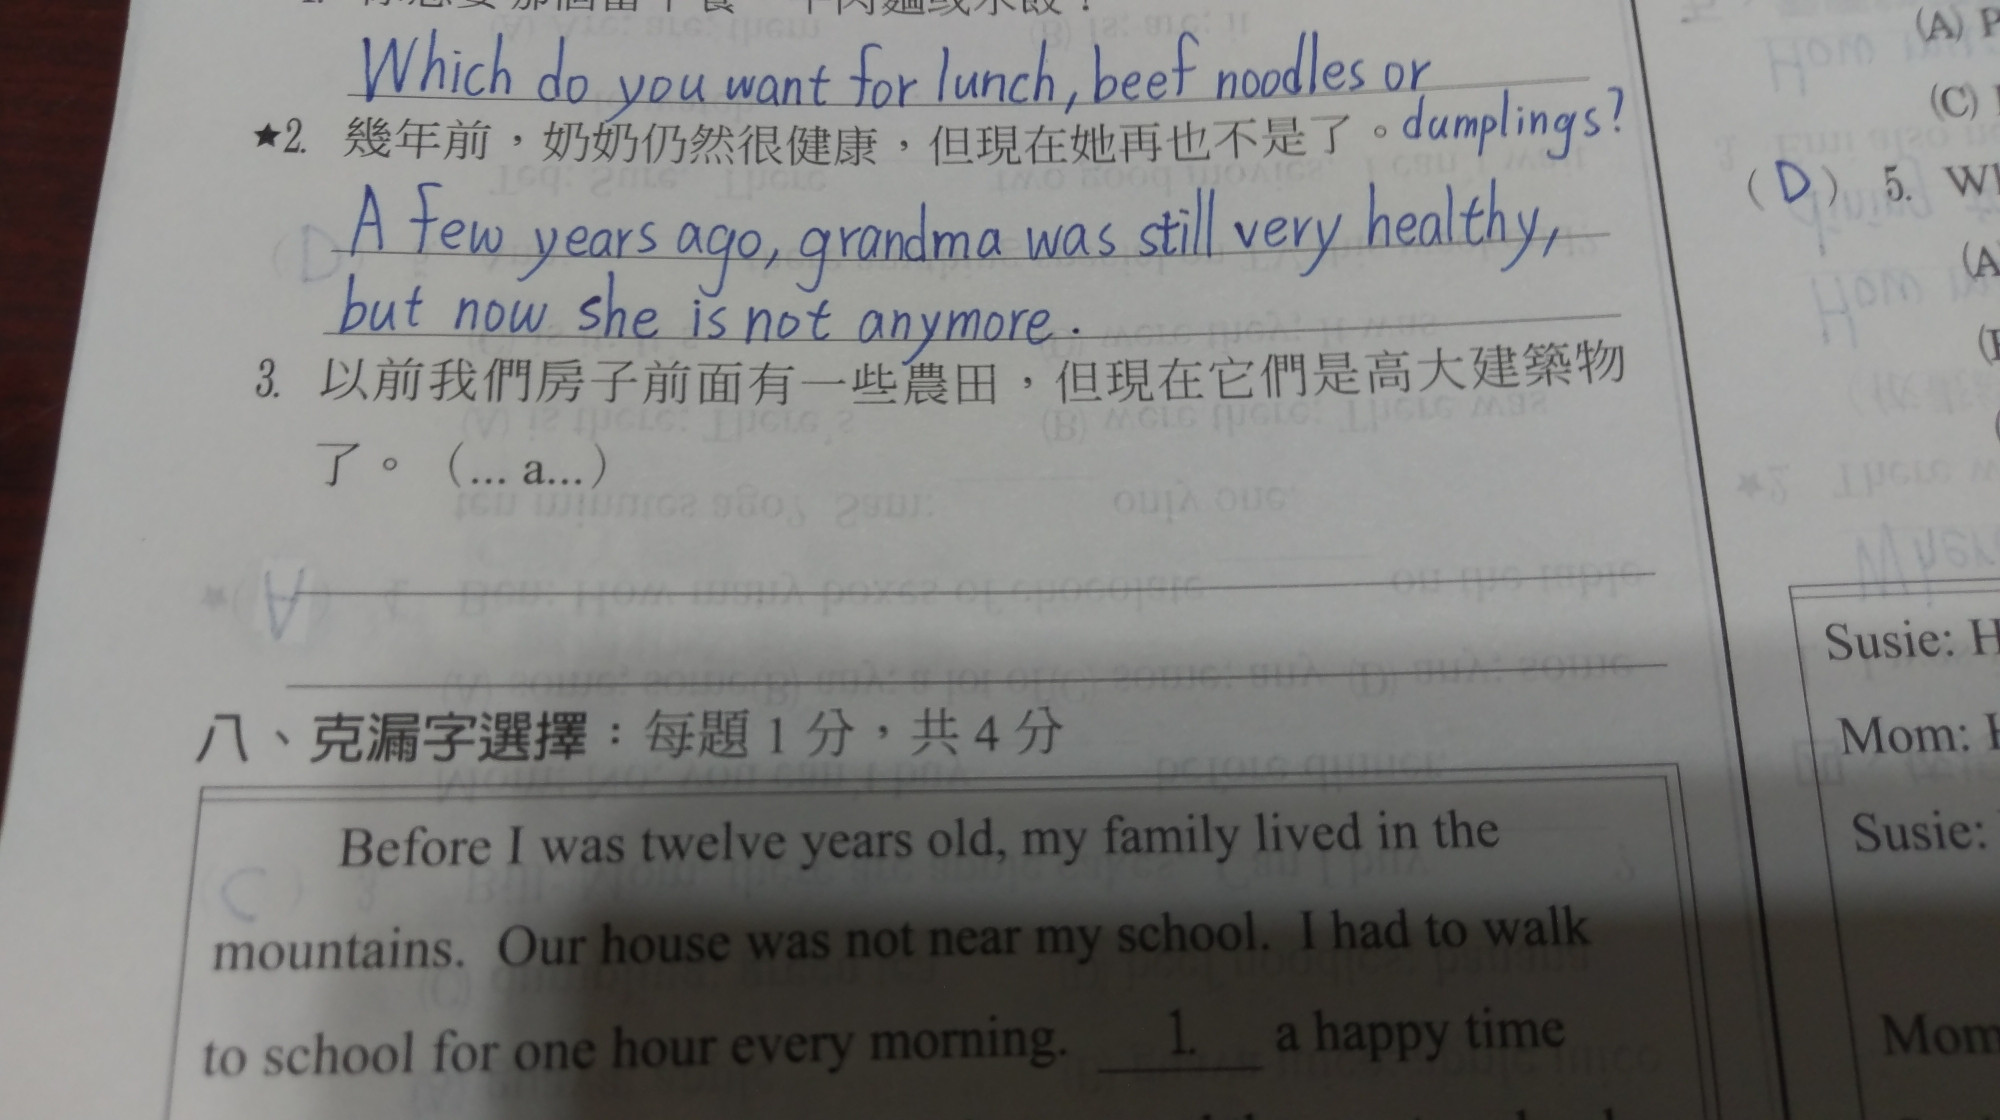 Which do you want for lunch, beef noodles or
dumplings?
★2. 幾年前，奶奶仍然很健康，但現在她再也不是了。
A few years ago, grandma was still very healthy,
but now she is not anymore.
3. 以前我們房子前面有一些農田，但現在它們是高大建築物
了。（... a...）
八、克漏字選擇：每題 1 分，共 4 分
Before I was twelve years old, my family lived in the
mountains. Our house was not near my school. I had to walk
to school for one hour every morning. 1. a happy time
(A) P
(C)
(D) 5. Wh
(A)
Susie: H
Mom: H
Susie:
Mom